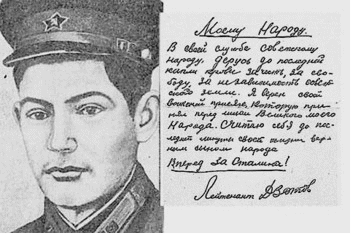 Моему Народу.
В своей службе Советскому
народу, дерусь до последней
капли крови за честь, за сво-
боду, за независимость
земли. Я верен своей
присяге, которую при-
нял перед лицом Великого моего
Народа. Считаю себя до пос-
ледней минуты своей жизни вер-
ным сыном народа
Вперед за Сталина!
Лейтенант